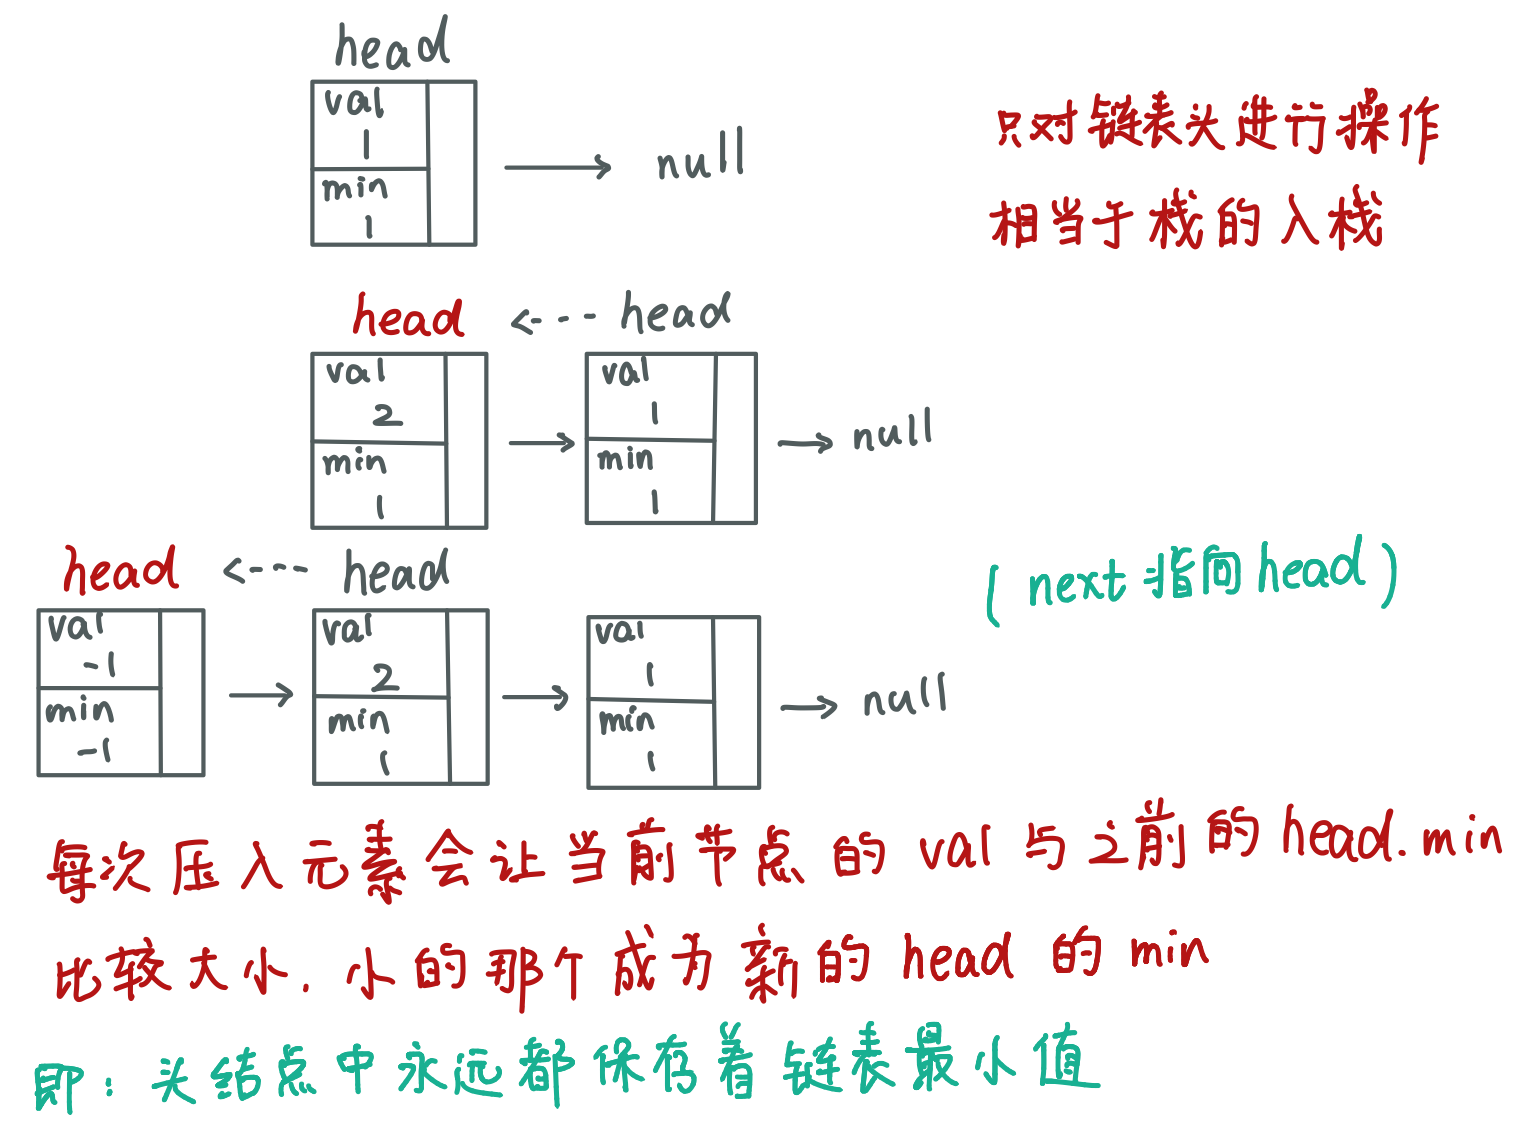 head
val
1
min
1
null
只对链表头进行操作
相当于栈的入栈
head head
val
2
min
1
val
1
min
1
null
head head
(next指向head)
val
-1
min
-1
val
2
min
1
val
1
min
1
null
每次压入元素会让当前节点的val与之前的head.min
比较大小.小的那个成为新的head的min
即:头结点中永远都保存着链表最小值